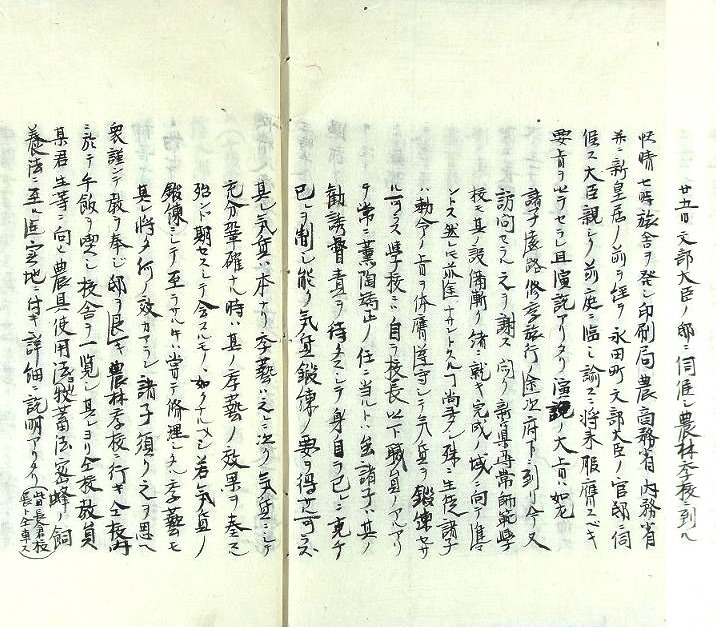 廿五日文部大臣ノ邸ニ伺候シ農林学校ニ到ル
快晴七時旅舎ヲ発シ印刷局農商務省内務省
并ニ新皇居ノ前ヲ経テ永田町文部大臣ノ官邸ニ伺
候ス大臣親シク前庭ニ臨ミ諭スニ将来服膺スベキ
要旨ヲ以テセラレ且演説アリタリ演説ノ大旨ハ如左
諸子遠路修学旅行ノ途次府下ニ到リ今又
訪問セラル之ヲ謝ス聞ク新潟尋常師範学
校モ其ノ設備漸ク緒ニ就キ完成ノ域ニ向テ進マ
ントス然レ𪜈前途ナサントスル丁尚多シ殊ニ生徒諸子
ハ勅令ノ旨ヲ体膺遵守シテ気質ヲ鍛錬セサ
ル可ラス学校ニハ自ラ校長以下職員ノアルアリ
テ常ニ薫陶矯正ノ任ニ当ルト雖諸子ハ其ノ
勧誘督責ヲ待タスシテ身自ラ己レニ克チ
己レヲ制シ能ク気質鍛錬ノ要ヲ得サル可ラズ
其レ気質ハ本ナリ学藝ハ之ニ次ク気質ニシテ
充分鞏確ナル時ハ其ノ学藝ノ効果ヲ奏スル
殆ント期セスシテ会スルモノヽ如クナルベシ若シ気質ノ
鍛錬ニシテ至ラサルトキハ嘗テ修理シタル学藝モ
其レ将タ何ノ效カアラン諸子須ク之ヲ思ヘ
衆謹ンテ教ヲ奉シ邸ヲ退キ農林学校ニ行キ仝校内
ニ於テ午飯ヲ喫シ校舎ヲ一覧シ其レヨリ仝校教員
某君生等ニ向ヒ農具使用法牧畜法蜜蜂ノ飼
養法ニ至ル迄実地ニ付キ詳細ニ説明アリタリ